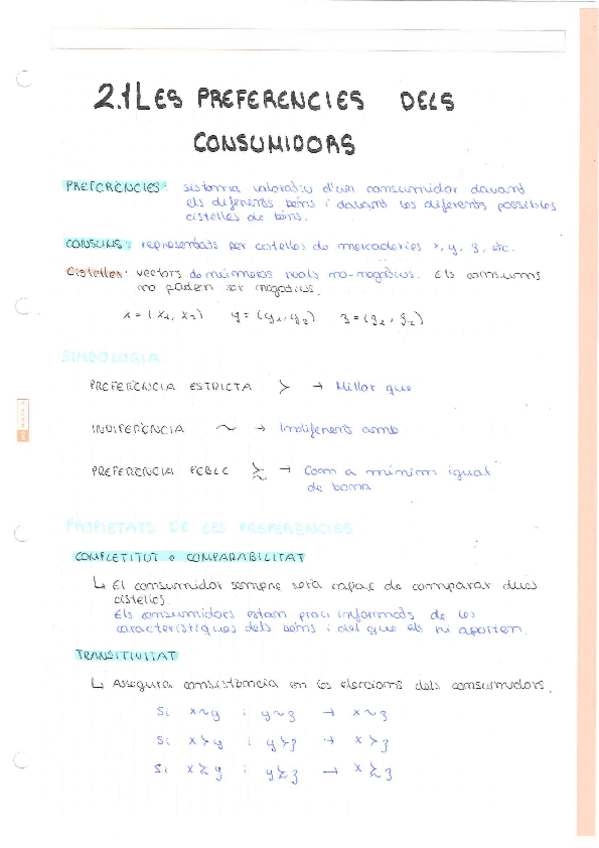 2.1 LES PREFERENCIES DELS
CONSUMIDORS
PREFERÈNCIES: sistema valoratiu d'un consumidor davant
els diferents béns i davant les diferents possibles
cistelles de béns.
CONSUMS: representats per cistelles de mercaderies x, y, z, etc.
Cistelles: vectors de números reals no-negatius. Els consums
no poden ser negatius.
x = (x₁, x₂) y = (y₁, y₂) z = (z₁, z₂)
SIMBOLOGIA
PREFERÈNCIA ESTRICTA ≻ → Millor que
INDIFERÈNCIA ∼ → Indiferent amb
PREFERÈNCIA FEBLE ≿ → Com a mínim igual
de bona
PROPIETATS DE LES PREFERENCIES
COMPLETITUT o COMPARABILITAT
↳ El consumidor sempre serà capaç de comparar dues
cistelles.
Els consumidors estan prou informats de les
característiques dels béns i del que els hi aporten.
TRANSITIVITAT
↳ Assegura consistència en les eleccions dels consumidors.
Si x∼y i y∼z → x∼z
Si x≻y i y≻z → x≻z
Si x≿y i y≿z → x≿z